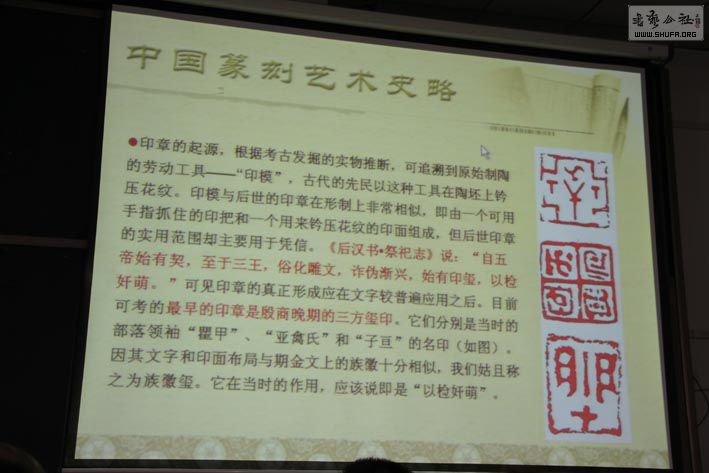 书法公社
WWW.SHUFA.ORG
中国篆刻艺术史略
●印章的起源，根据考古发掘的实物推断，可追溯到原始制陶
的劳动工具——“印模”，古代的先民以这种工具在陶坯上钤
压花纹。印模与后世的印章在形制上非常相似，即由一个可用
手指抓住的印把和一个用来钤压花纹的印面组成，但后世印章
的实用范围却主要用于凭信。《后汉书•祭祀志》说：“自五
帝始有契，至于三王，俗化雕文，诈伪渐兴，始有印玺，以检
奸萌。”可见印章的真正形成应在文字较普遍应用之后。目前
可考的最早的印章是殷商晚期的三方玺印。它们分别是当时的
部落领袖“瞿甲”、“亚禽氏”和“子亘”的名印（如图）。
因其文字和印面布局与期金文上的族徽十分相似，我们姑且称
之为族徽玺。它在当时的作用，应该说即是“以检奸萌”。